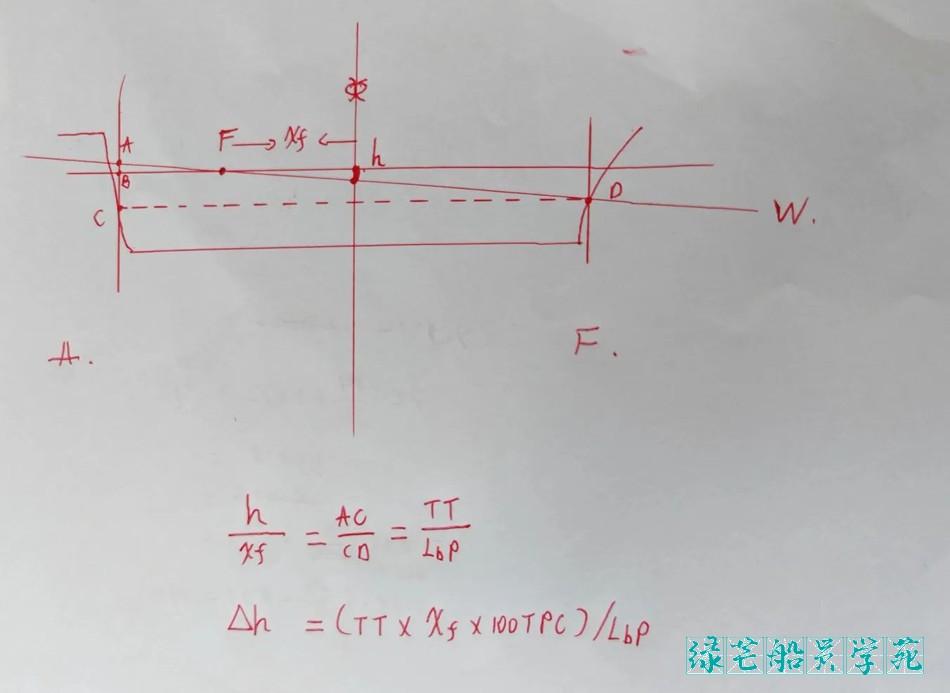 A
F → Xf ←
h
B
C
D
W.
A.
F.
h/Xf = AC/CD = TT/LbP
Δh = (TT x Xf x 100TPC)/LbP
绿芒船员学苑